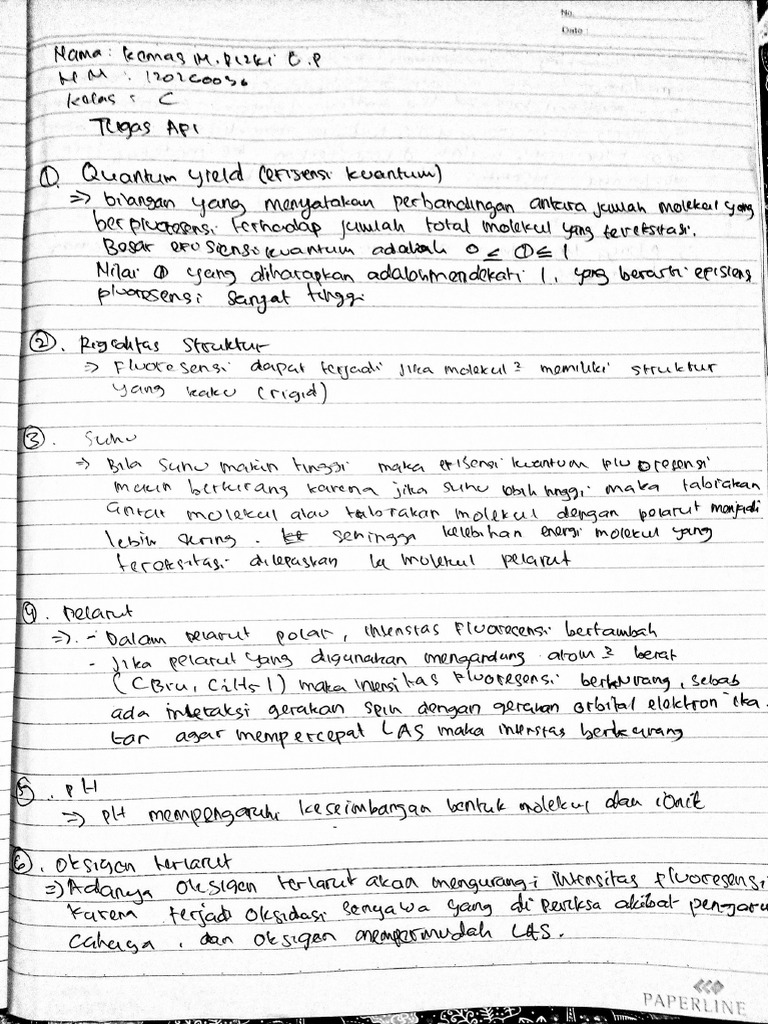 No.
Date
Nama : Kemas M. Rizki C. P
NIM : 12020036
Kelas : C
Tugas API
① Quantum yield (efisensi kuantum)
⇒ bilangan yang menyatakan perbandingan antara jumlah molekul yang
berpluoresensi terhadap jumlah total molekul yang tereksitasi.
Besar efisiensi kuantum adalah 0 ≤ Φ ≤ 1
Nilai Φ yang diharapkan adalah mendekati 1, yang berarti episiens
pluoresensi sangat tinggi
②. Rigeditas Struktur
⇒ Fluoresensi dapat terjadi jika molekul² memiliki struktur
yang kaku (rigid)
③. Suhu
⇒ Bila suhu makin tinggi maka efisensi kuantum pluoresensi
makin berkurang karena jika suhu lebih tinggi maka tabrakan
antar molekul atau tabrakan molekul dengan pelarut menjadi
lebih sering. sehingga kelebihan energi molekul yang
tereksitasi dilepaskan ke molekul pelarut
④. Pelarut
⇒. - Dalam pelarut polar, intenstas Fluorecensi bertambah
- Jika pelarut yang digunakan mengandung atom² berat
(CBr4, C2H5I) maka intensitas fluoresensi berkurang, sebab
ada interaksi gerakan spin dengan gerakan orbital elektron ika
tan agar mempercepat LAS maka intenstas berkurang
⑤. pH
⇒ pH mempengaruhi keseimbangan bentuk molekul dan ionik
⑥. Oksigen terlarut
⇒ Adanya oksigen terlarut akan mengurangi intensitas fluoresensi
karena terjadi oksidasi senyawa yang di periksa akibat pengaru
cahaya, dan oksigen mempermudah LAS.
PAPERLINE